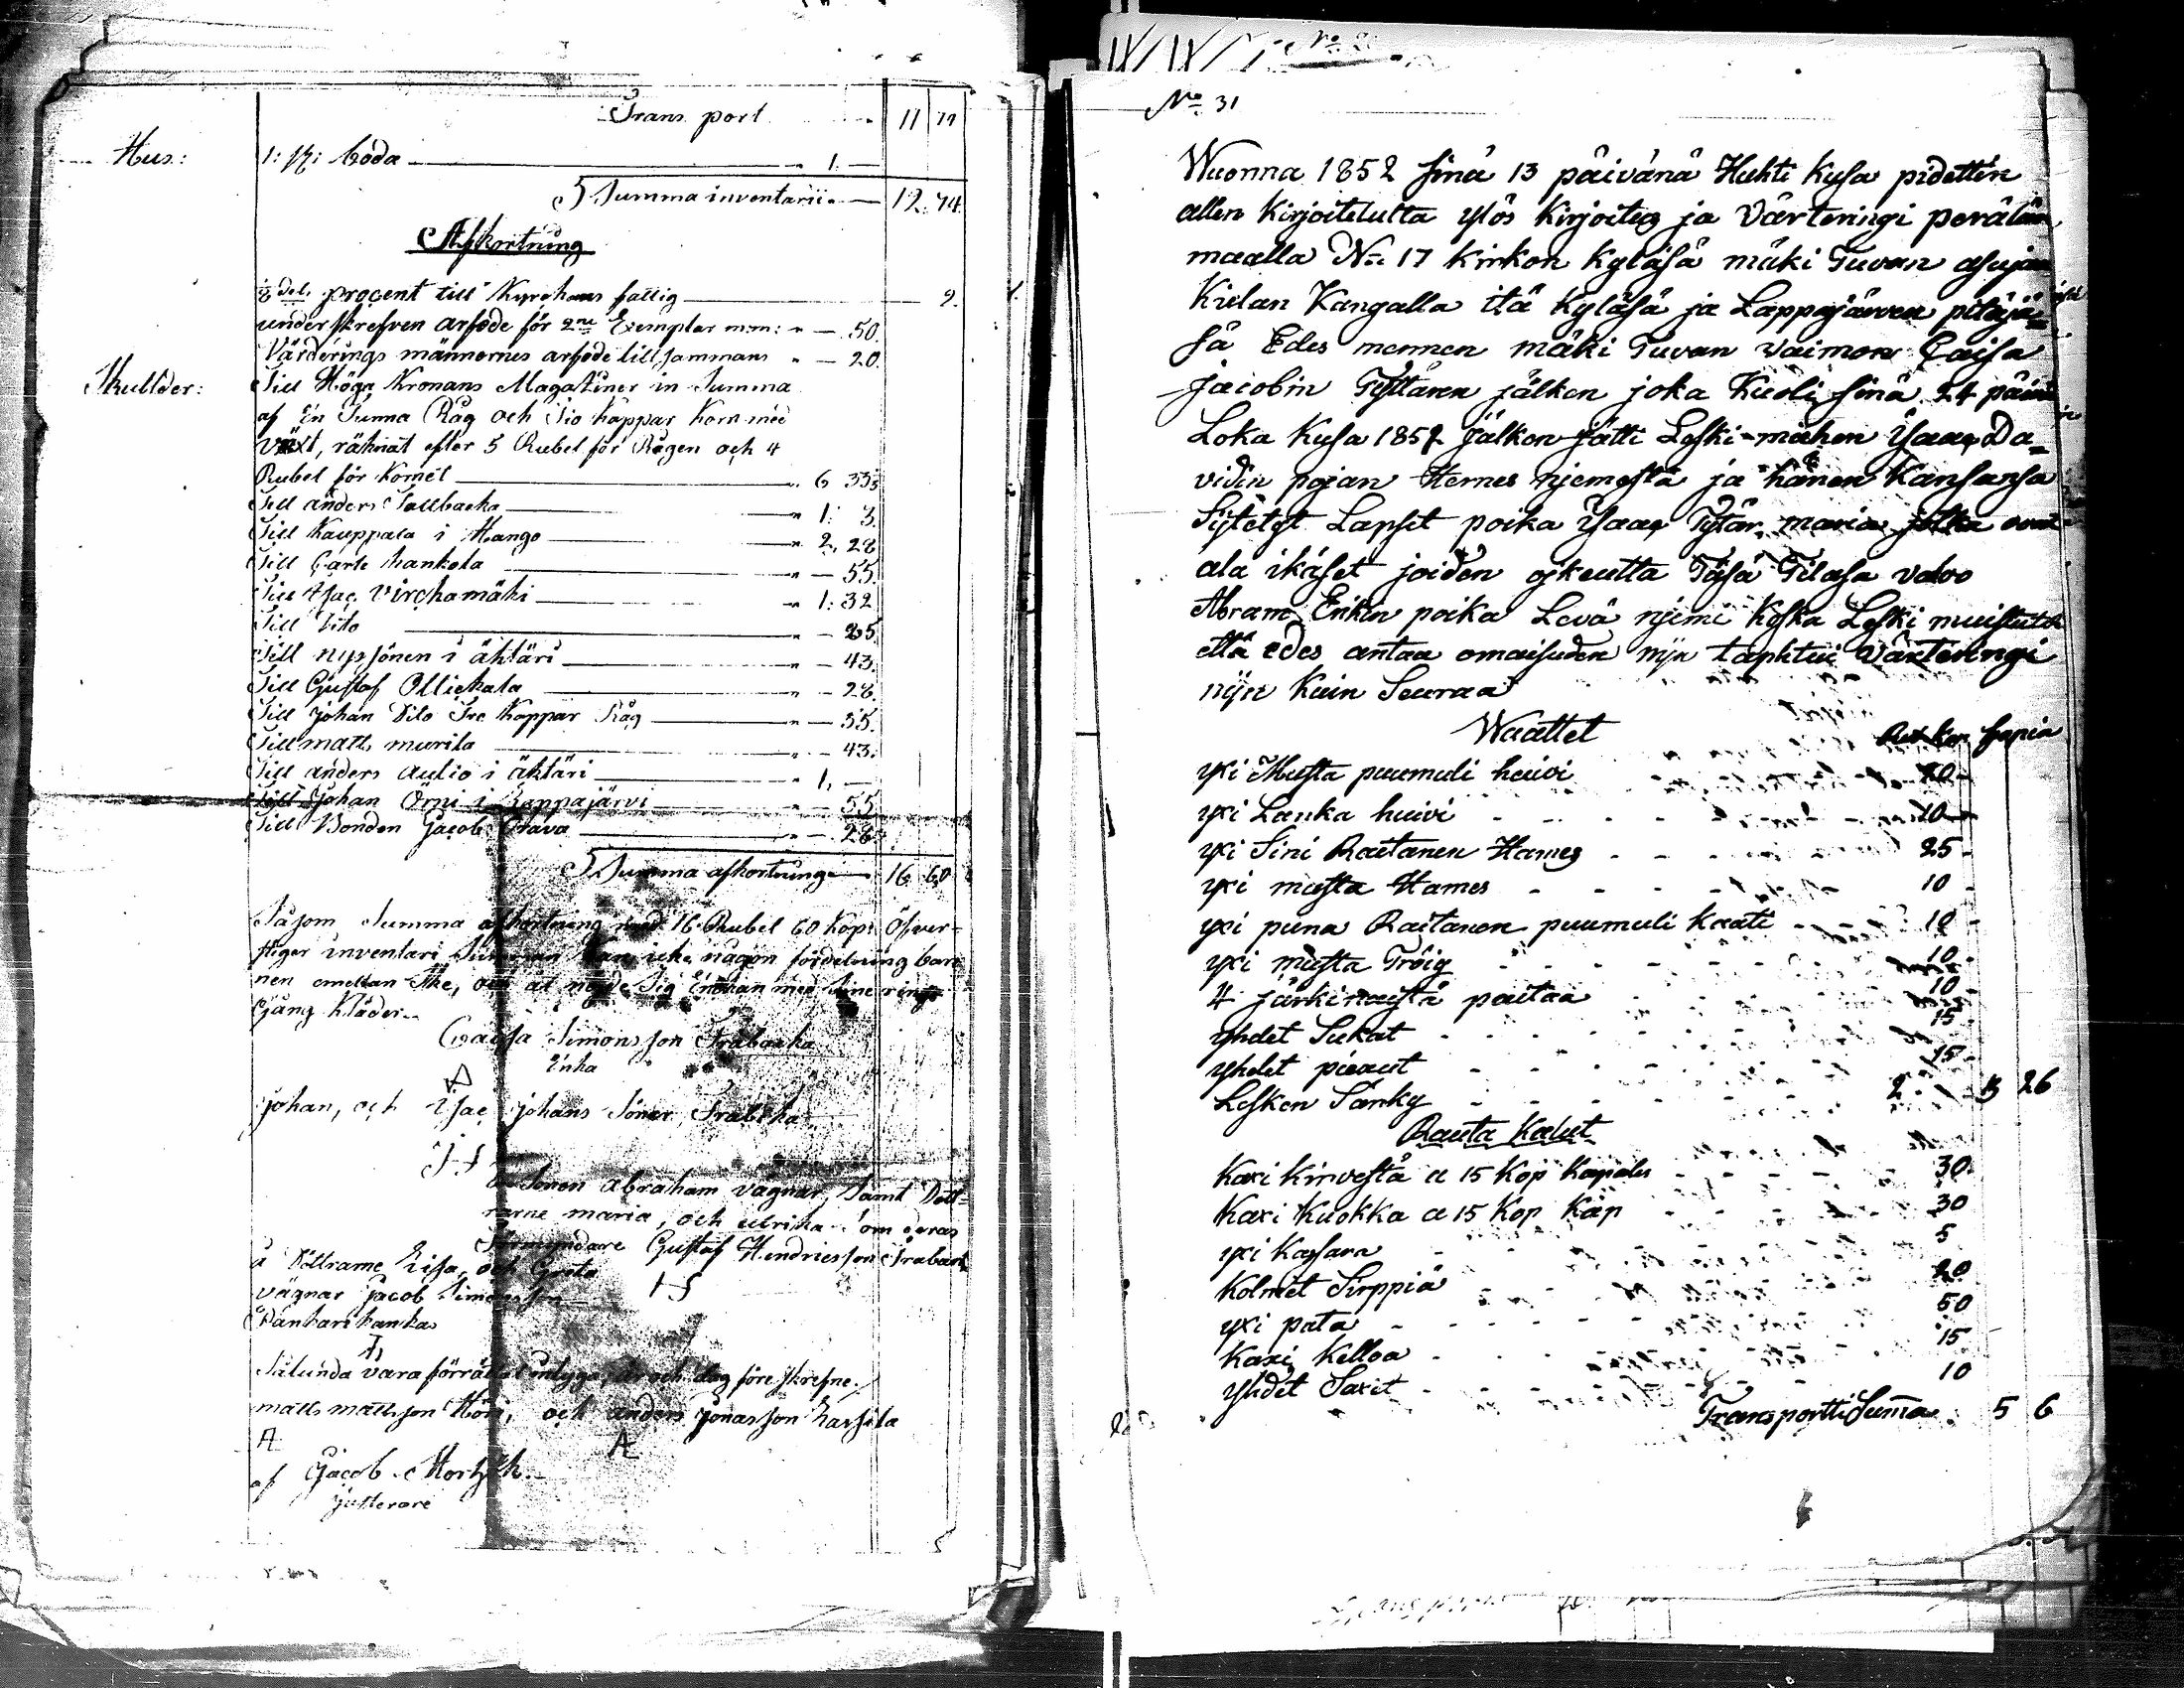 Transport 11 74
Hus: 1: st: boda 1.
Summa inventarii 12. 74.
Afkortning
1/8 del. procent till Kyrchans fattig 9.
underskrefven arfvode för 2ne Exemplar m:m: " — 50.
Värderings männernes arfvode tillsammans " — 20.
Skullder: Till Höga Kronans Magatziner in Summa
af En Tunna Råg och Tio Kappar Korn med
växt, räknat efter 5 Rubel för Rågen och 4
Rubel för Kornet " 6 33
Till anders Tallbacka " 1: 3.
Till Kauppala i Hango " 2, 28
Till Carle hankola " — 55.
Till Isac Virchamäki " 1: 32
Till Dito " — 25.
Till nyssönen i ähtäri " — 43.
Till Gustaf Olliekala " — 28.
Till johan Dito Tre Kappar Råg " — 35.
Till matts murila " — 43.
Till anders aulio i ähtäri " 1, —
Till Johan Örni i Lappajärvi " — 55
Till Bonden Jacob Prava " — 28.
Summa afkortning 16 60
Såsom Summa afkortning med 16 Rubel 60 Kop: öfver-
stiger inventari Summan Kan icke någon fördelning bar-
nen emellan Ske, och åt nöjde Sig Enkan med Sine ringa
Gång Kläder.
Caisa Simonsson Träbacka
Enka
johan, och Isac johans Söner Träbacka
Sonen abraham vägnar, Samt Dött-
rarne maria, och ulrika om deras
Förmyndare Gustaf Hendricsson Träback
å Döttrarne Lisa, och Greta
vägnar Jacob Simonsson
Pankarikankas
Sålunda vara förrättat intyga, år och dag före skrefne.
matts mattsson Höri, och anders jonasson Kassila
A A
af Jacob Hort
justerare
No 31
Wuonna 1852 sinä 13 päivänä Huhti Kusa pidettin
allen Kirjoitelutta ylös Kirjoitus ja Värteringi perälän
maalla No 17 Kirkon Kyläsä mäki Tuvan asujan
Kielan Kangalla itä Kyläsä ja Lappajärven pitäjä=
sä Edes mennen mäki Tuvan vaimon Caisa
Jacobin Tyttären jälken joka Kuoli sinä 24 päivä
Loka Kusa 1851 jälken jätti Leski-miehen Isaac Da=
vidin pojan Hernes niemestä ja hänen Kansansa
Sijtetyt Lapset poika Isaac Tytär maria jotka ovat
ala ikäset joiden ojkeutta Täsä Tilasa valvo
Abram Erikin poika Levä njemi Koska Leski muistutet
että edes antaa omaisuden nijn tapahtui Värteringi
nijn Kuin Seuraa
Waattet Ruplaa Kopia
yxi Musta puumuli huivi 20
yxi Lanka huivi 10
yxi Sini Raitanen Hames 25
yxi musta Hames 10
yxi puna Raitanen puumuli kaati 10
yxi musta Tröig 10
4 järkinaistä paitaa 10
yhdet Sukat 15
yhdet piexut 15
Lesken Sänky 2 3 26
Rauta Kalut
Kaxi kirvestä a 15 Kop Kapalu 30
Kaxi Kuokka a 15 Kop Käp 30
yxi Kassara 5
Kolmet Sirppiä 20
yxi pata 50
Kaxi Kelloa 15
yhdet Saxit 10
Transportti Suma 5 6